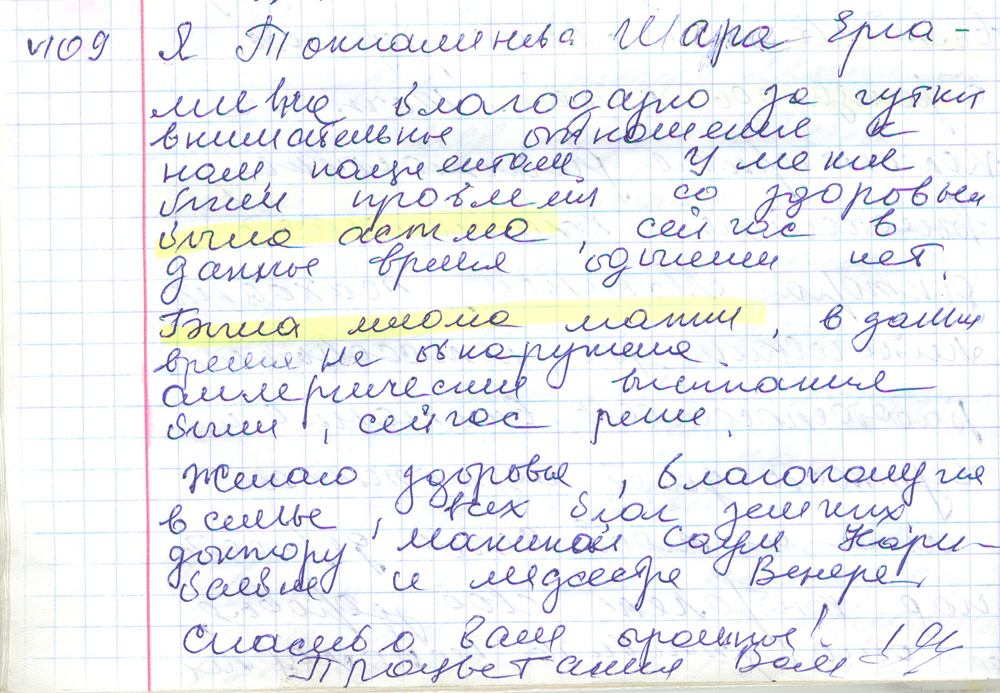 №109 Я Токжаминова Шара Ерга-
лиевна благодарю за чутки
внимательные отношение к
нам, пациентам. У меня
были проблемы со здоровьем
была астма, сейчас в
данные время одышки нет.
Была миома матки, в данные
время не обнаружена.
Аллергические высыпания
были, сейчас реже.
Желаю здоровья, благополучия
в семье, всех благ земных
доктору, Сауле Кари-
баевне и медсестре Венере.
Спасибо вам огромные!
Процветания Вам